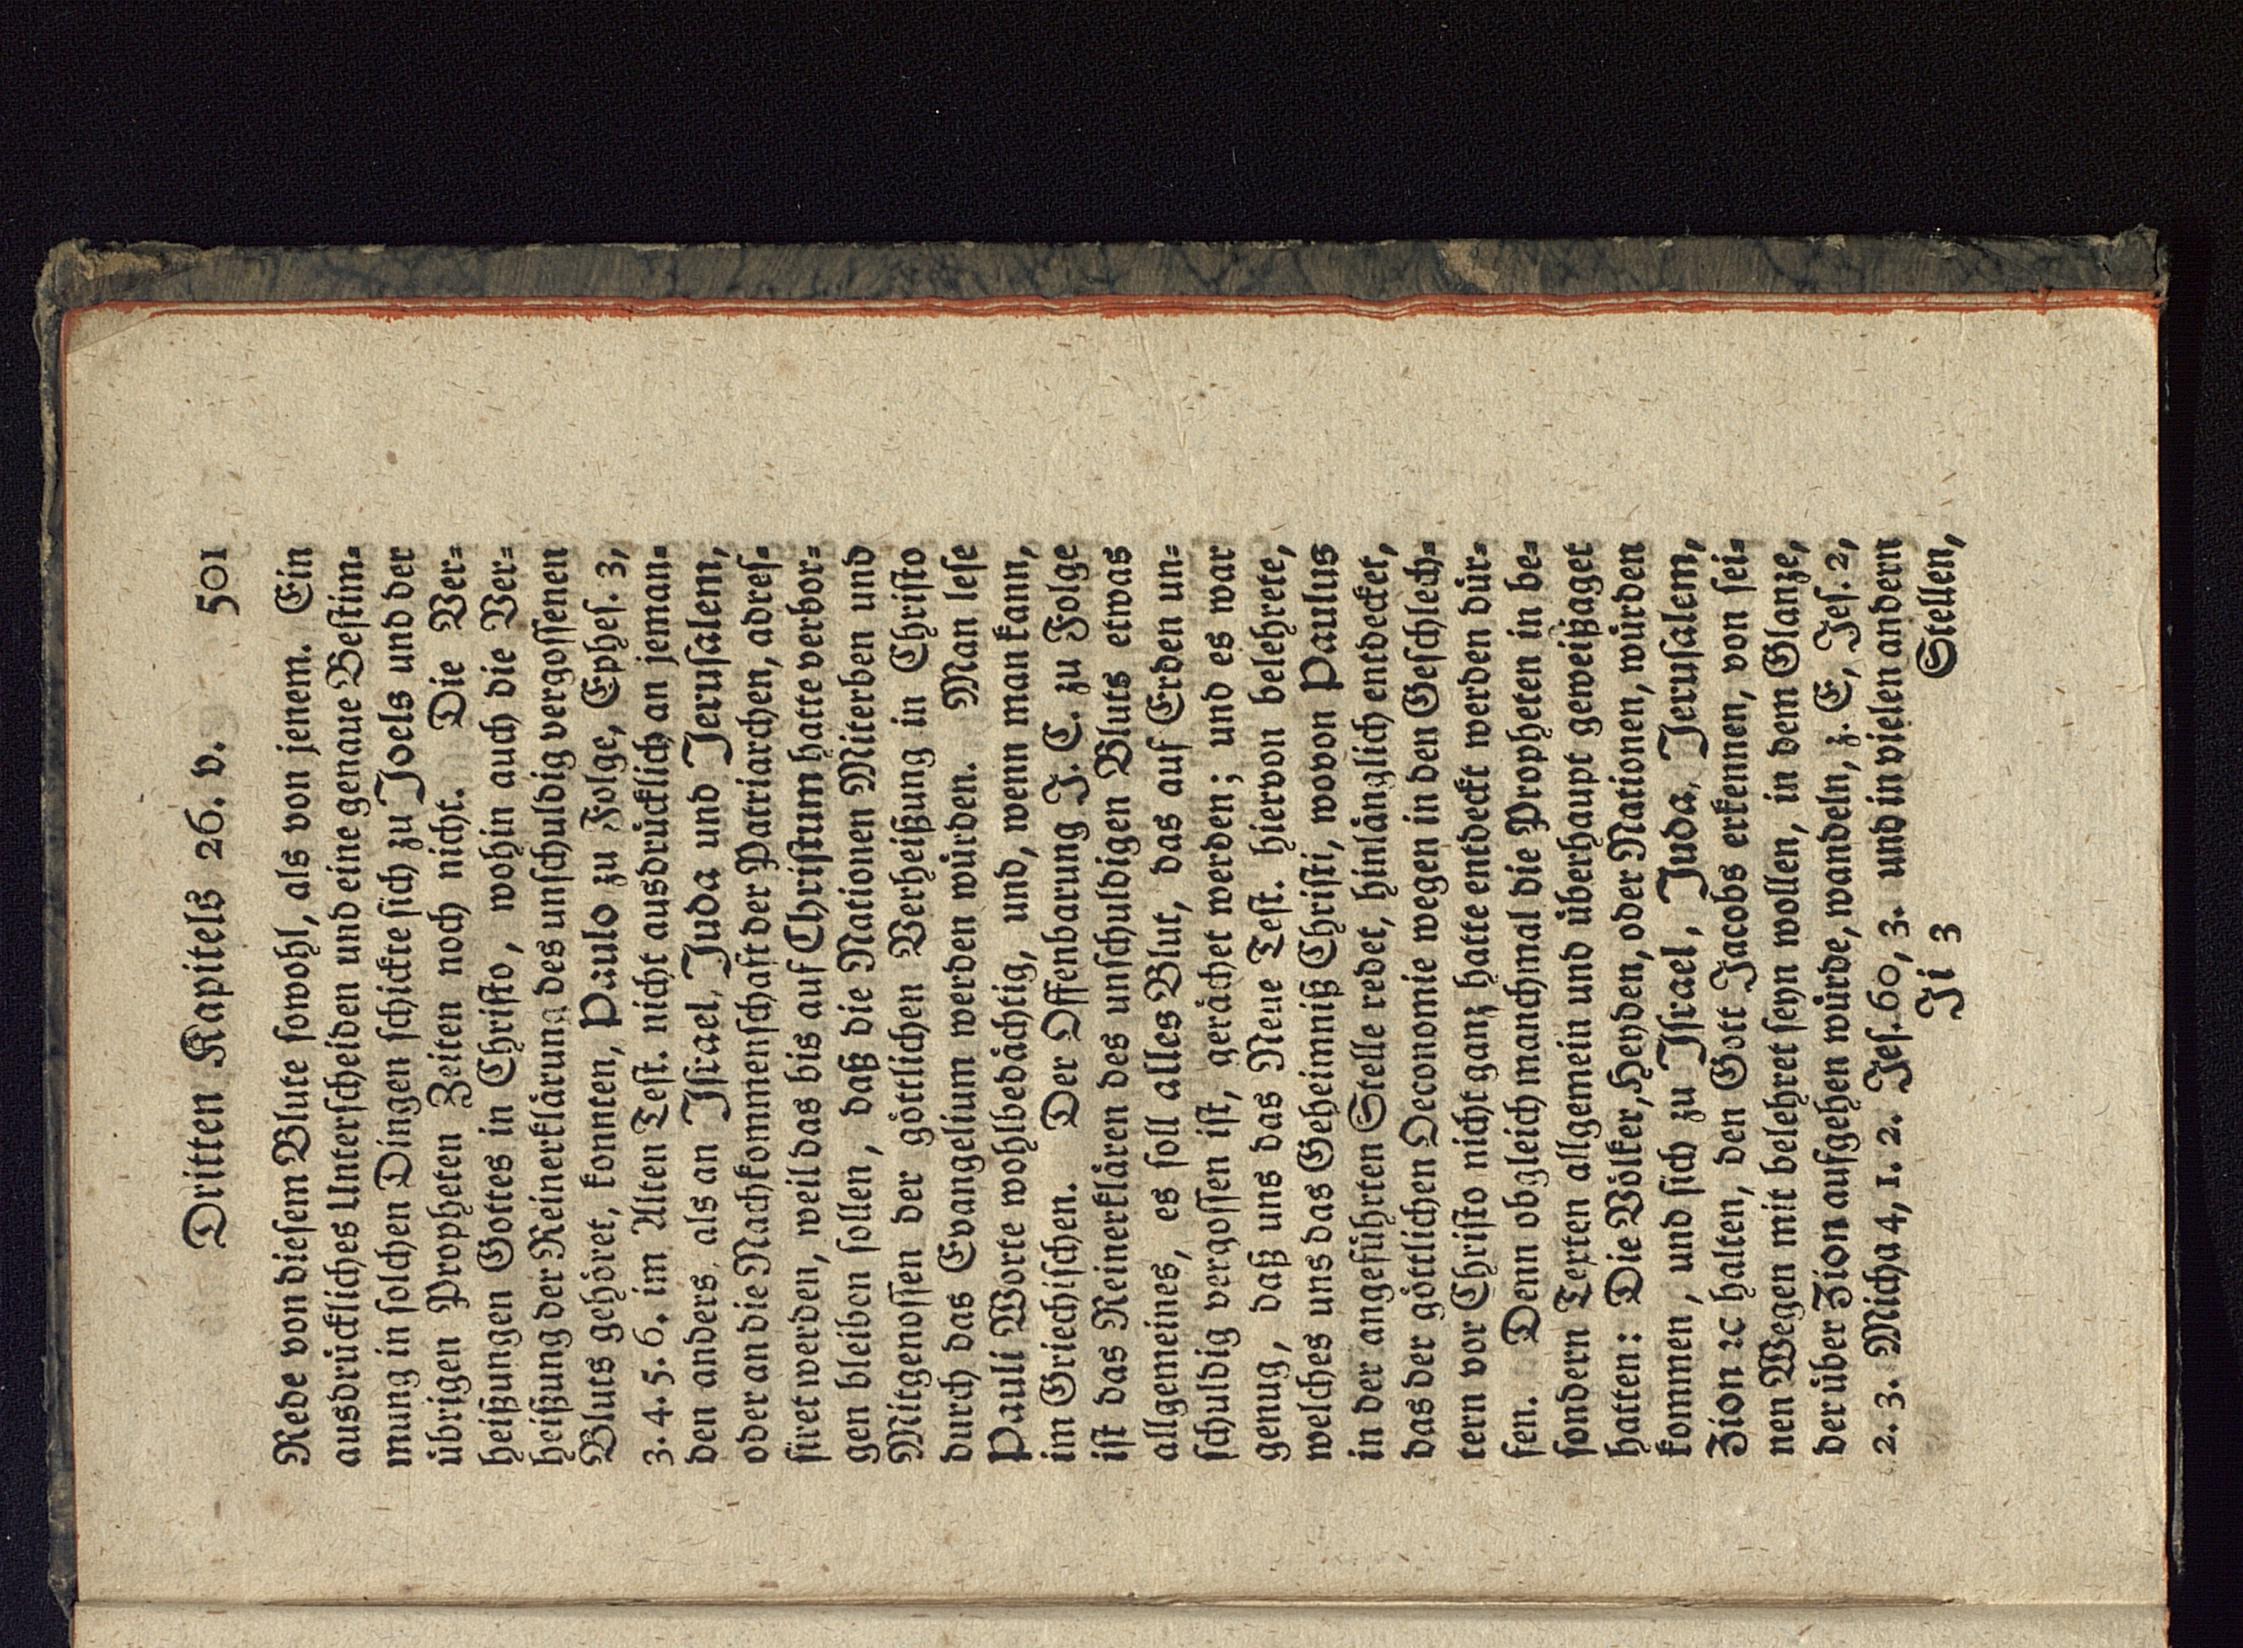 Dritten Kapitels 26. v. 501
Rede von diesem Blute sowohl, als von jenem. Ein
ausdrückliches Unterscheiden und eine genaue Bestim-
mung in solchen Dingen schickte sich zu Joels und der
übrigen Propheten Zeiten noch nicht. Die Ver-
heißungen Gottes in Christo, wohin auch die Ver-
heißung der Reinerklärung des unschuldig vergossenen
Bluts gehöret, konnten, Paulo zu Folge, Ephes. 3,
3. 4. 5. 6. im Alten Test. nicht ausdrücklich an jeman-
den anders, als an Israel, Juda und Jerusalem,
oder an die Nachkommenschaft der Patriarchen, adres-
siret werden, weil das bis auf Christum hatte verbor-
gen bleiben sollen, daß die Nationen Miterben und
Mitgenossen der göttlichen Verheißung in Christo
durch das Evangelium werden würden. Man lese
Pauli Worte wohlbedächtig, und, wenn man kann,
im Griechischen. Der Offenbarung J. C. zu Folge
ist das Reinerklären des unschuldigen Bluts etwas
allgemeines, es soll alles Blut, das auf Erden un-
schuldig vergossen ist, gerächet werden; und es war
genug, daß uns das Neue Test. hiervon belehrete,
welches uns das Geheimniß Christi, wovon Paulus
in der angeführten Stelle redet, hinlänglich entdecket,
das der göttlichen Oeconomie wegen in den Geschlech-
tern vor Christo nicht ganz hatte entdeckt werden dür-
fen. Denn obgleich manchmal die Propheten in be-
sondern Texten allgemein und überhaupt geweißaget
hatten: Die Völker, Heyden, oder Nationen, würden
kommen, und sich zu Israel, Juda, Jerusalem,
Zion ꝛc halten, den Gott Jacobs erkennen, von sei-
nen Wegen mit belehret seyn wollen, in dem Glanze,
der über Zion aufgehen würde, wandeln, z. E, Jes. 2,
2. 3. Micha 4, 1. 2. Jes. 60, 3. und in vielen andern
Ji 3 Stellen,